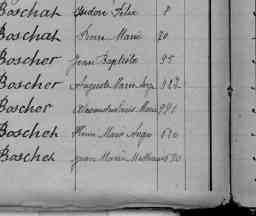 Boschat Isidore Felix 8
Boschat Pierre Marie 20
Boscher Jean Baptiste 95
Boscher Auguste Marie Ange
Boscher Marie
Boschet Pierre Marie Ange 670
Boschet Jean Marie Mathurin